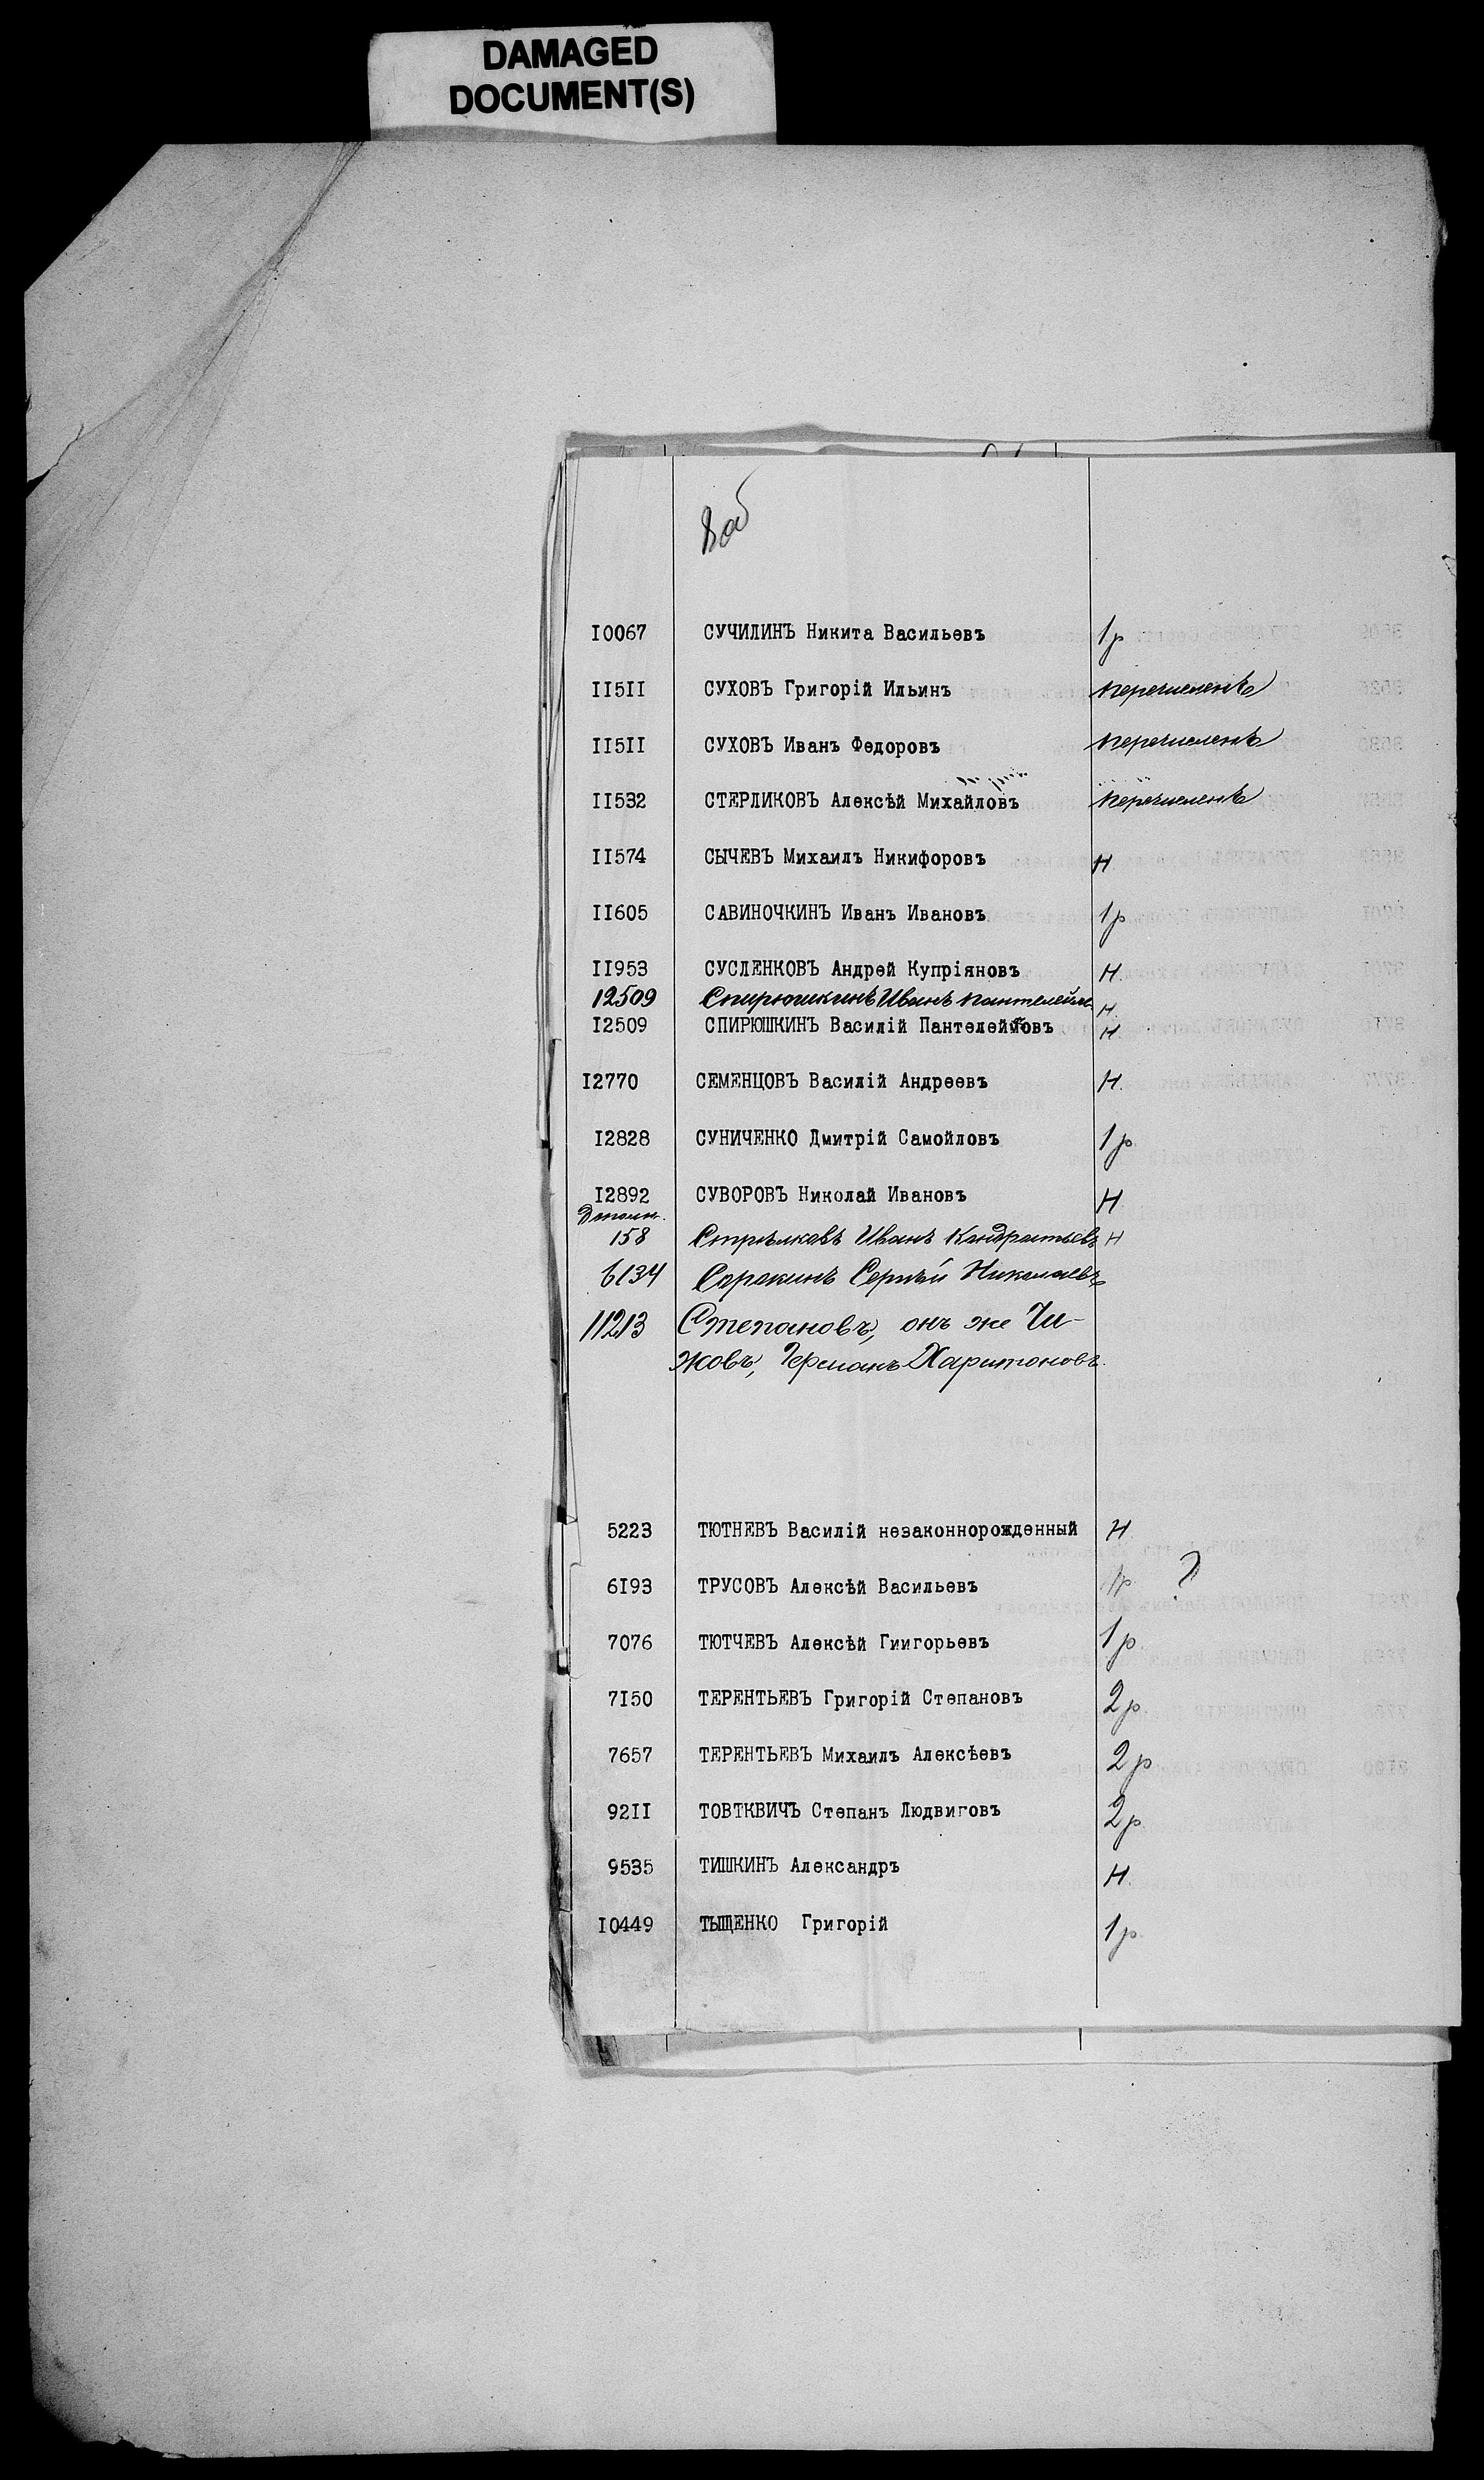 DAMAGED
DOCUMENT(S)
I0067 СУЧИЛИНЪ Никита Васильевъ 1р
II5II СУХОВЪ Григорій Ильинъ перечисленъ
II5II СУХОВЪ Иванъ Федоровъ перечисленъ
II532 СТЕРЛИКОВЪ Алексѣй Михайловъ перечисленъ
II574 СЫЧЕВЪ Михаилъ Никифоровъ Н
II605 САВИНОЧКИНЪ Иванъ Ивановъ 1р
II953 СУСЛЕНКОВЪ Андрей Купріяновъ Н.
12509 Спирюшкинъ Иванъ Пантелейм. Н.
I2509 СПИРЮШКИНЪ Василій Пантелеймовъ Н
I2770 СЕМЕНЦОВЪ Василій Андреевъ Н.
I2828 СУНИЧЕНКО Дмитрій Самойловъ 1р.
I2892 СУВОРОВЪ Николай Ивановъ Н
Дополн.
158 Стрѣлковъ Иванъ Кондратьевъ Н
6134 Сорокинъ Сергѣй Николаевъ
11213 Степановъ, онъ же Чи-
жовъ, Германъ Харитоновъ.
5223 ТЮТНЕВЪ Василій незаконнорожденный Н
6I93 ТРУСОВЪ Алексѣй Васильевъ 1р. ?
7076 ТЮТЧЕВЪ Алексѣй Гиигорьевъ 1р.
7I50 ТЕРЕНТЬЕВЪ Григорій Степановъ 2р.
7657 ТЕРЕНТЬЕВЪ Михаилъ Алексѣевъ 2р
92II ТОВТКВИЧЪ Степанъ Людвиговъ 2р.
9535 ТИШКИНЪ Александръ Н.
I0449 ТЫЩЕНКО Григорій 1р.